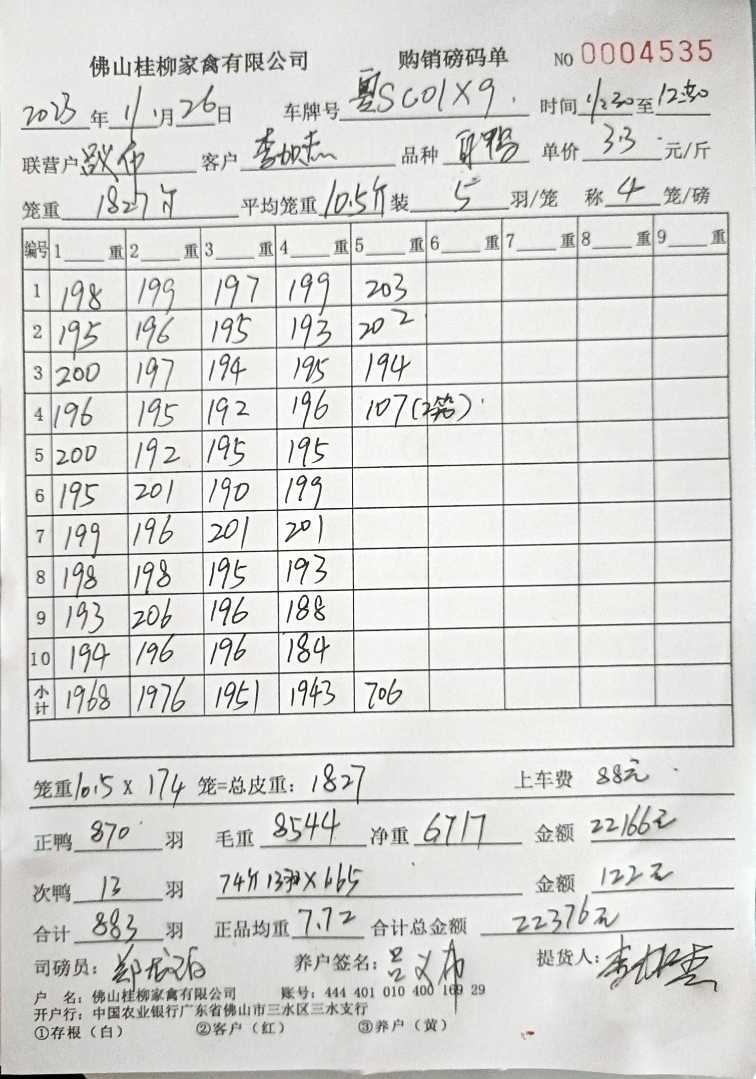 佛山桂柳家禽有限公司 购销磅码单 NO 0004535
2023年11月26日 车牌号 粤SC01X9 时间 至
联营户 客户 李 品种 单价 3.3 元/斤
笼重 1827斤 平均笼重 10.5斤 装 5 羽/笼 称 4 笼/磅
编号 1 重 2 重 3 重 4 重 5 重 6 重 7 重 8 重 9 重
1 198 199 197 199 203
2 195 196 195 193 202
3 200 197 194 195 194
4 196 195 192 196 107(2笼)
5 200 192 195 195
6 195 201 190 199
7 199 196 201 201
8 198 198 195 193
9 193 206 196 188
10 194 196 196 184
小计 1968 1976 1951 1943 706
笼重 10.5 x 174 笼=总皮重: 1827 上车费 88元
正鸭 870 羽 毛重 8544 净重 6717 金额 22166元
次鸭 13 羽 74斤 13羽 x 665 金额 122元
合计 883 羽 正品均重 7.72 合计总金额 22376元
司磅员: 养户签名: 提货人:
户 名: 佛山桂柳家禽有限公司 账号: 444 401 010 400 169 29
开户行: 中国农业银行广东省佛山市三水区三水支行
①存根(白) ②客户(红) ③养户(黄)